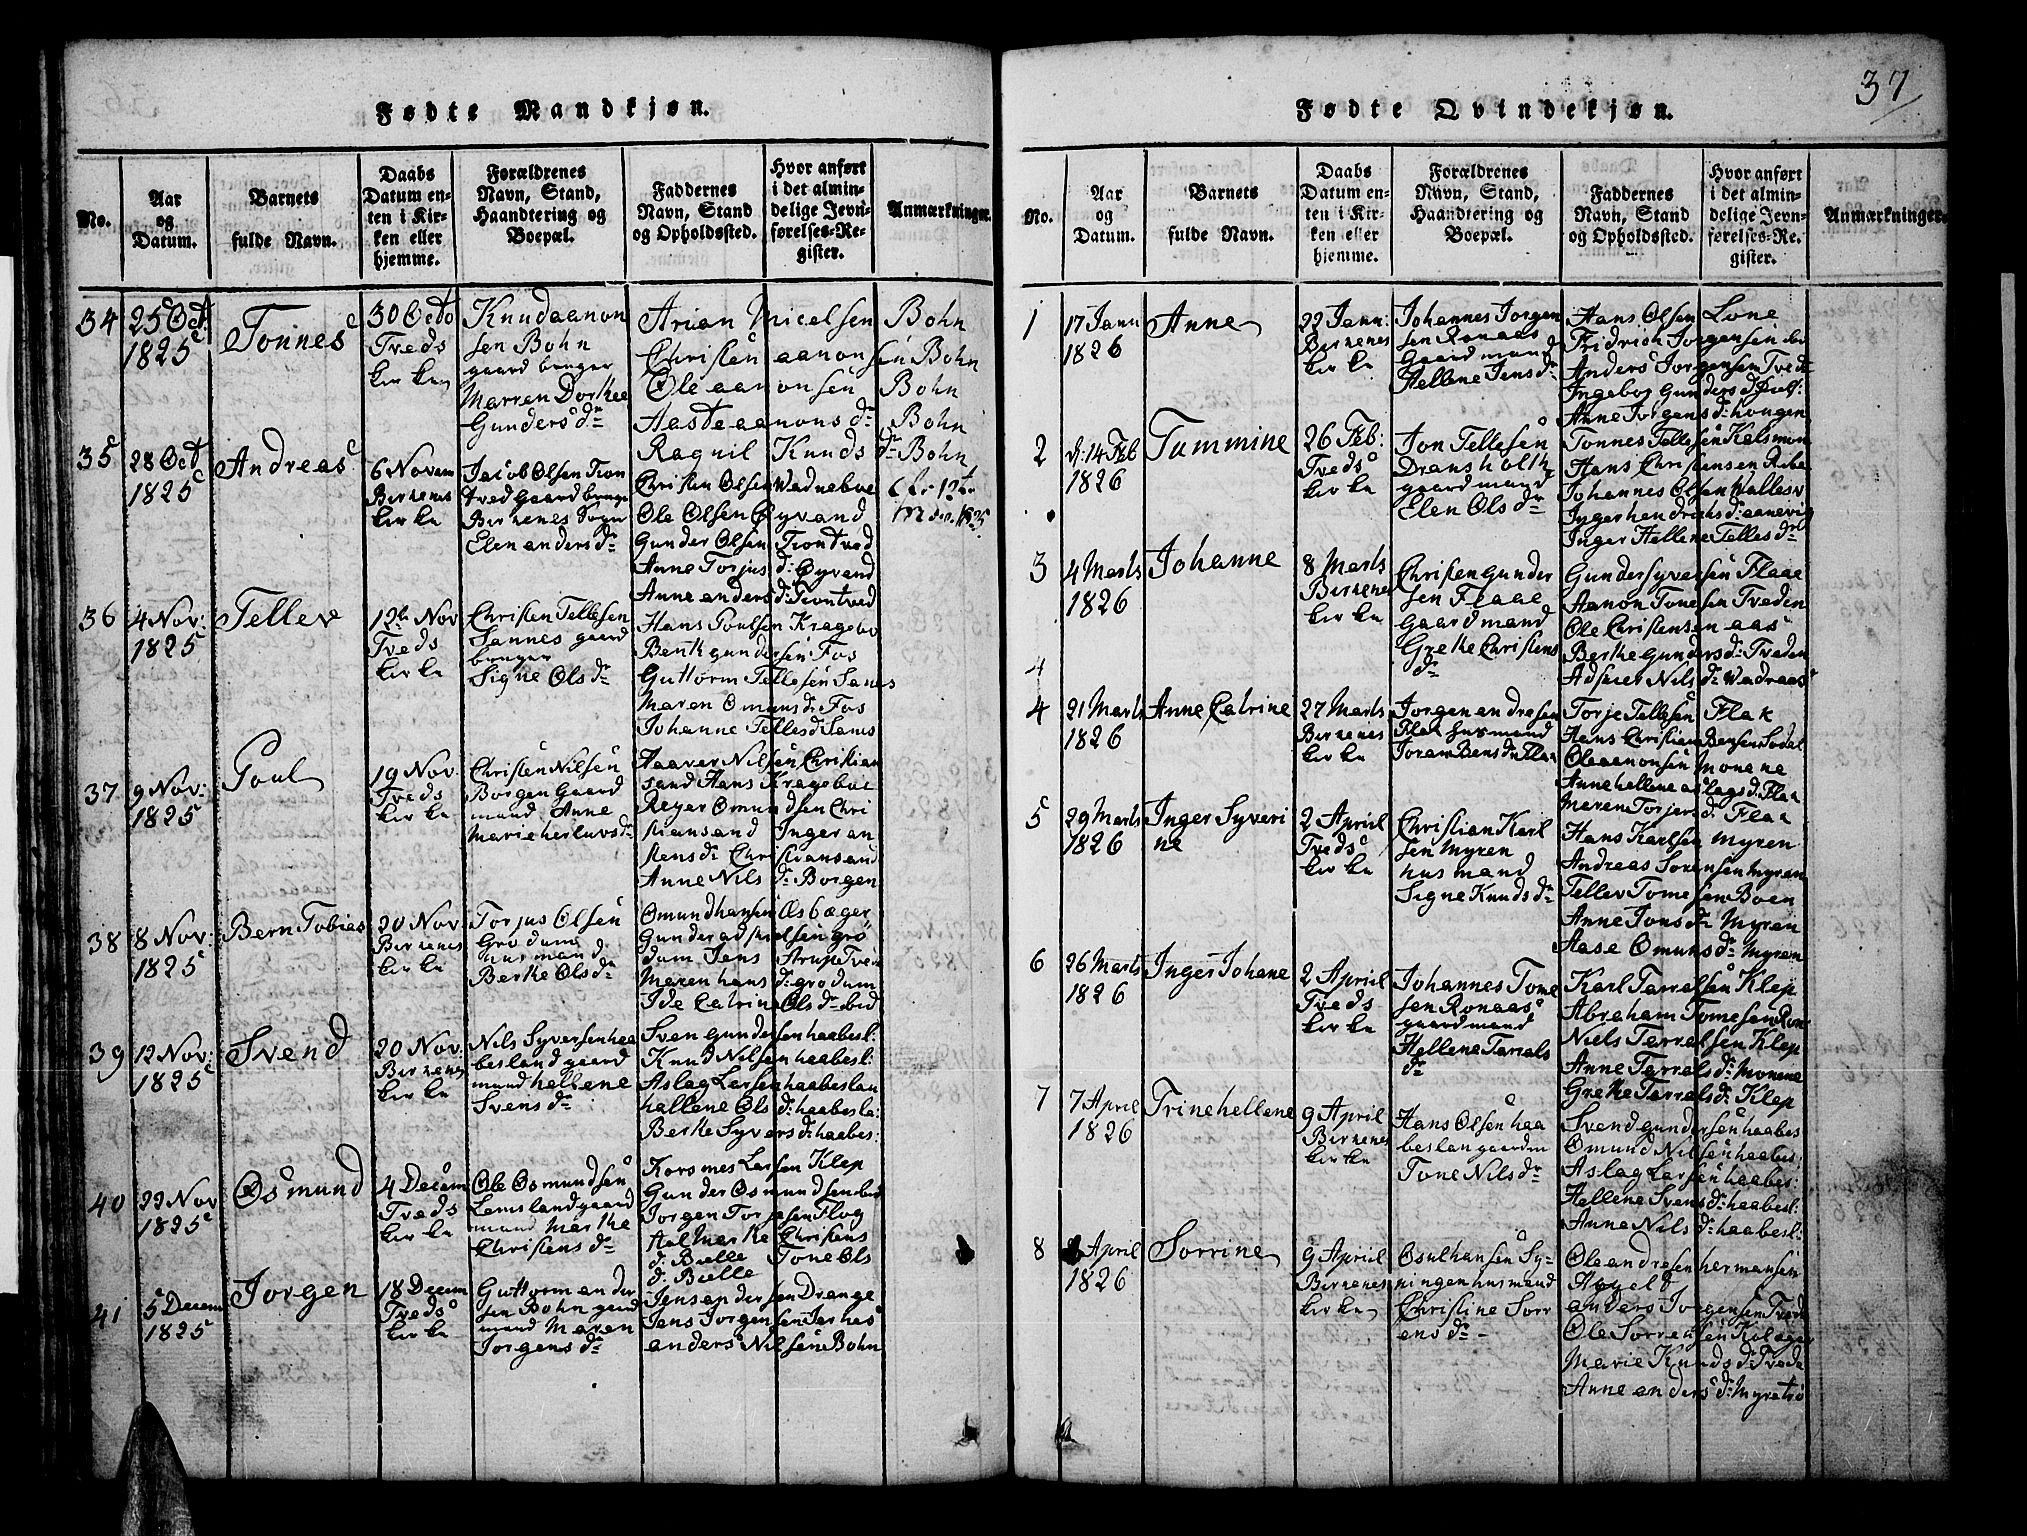 Fødte Mandkjøn.
No.
Aar
og
Datum.
Barnets
fulde Navn.
Daabs
Datum en-
ten i Kir-
ken eller
hjemme.
Forældrenes
Navn, Stand,
Haandtering og
Boepæl.
Faddernes
Navn, Stand
og Opholdssted.
Hvor anført
i det almin-
delige Jevn-
førelses-Re-
gister.
Anmærkninger.
34
25 Oct
1825
Tønnes
30 Octo
Tveds
kirken
Knud aanon
sen Bohn
gaard bruger
Marren Dorthea
Gunders dr
Arian Nicelsen Bohn
Christen aanonsen Bohn
Ole aanonsen Bohn
Aaste aanons dr Bohn
Ragnil Knuds dr Bohn
35
28 Oct
1825
Andreas
6 Novem
Birkenes
kirke
Jacob Olsen Tron
tved Gaard bruge
Birkenes Sogn
Elen anders dr
Christen Olsen
Ole Olsen Øyvand
Gunder Olsen Trontved
Anne Torjus d: Øyvand
Anne anders d: Trontved
36
4 Nov:
1825
Tellev
12te Nov
Tveds
kirke
Christen Tellefsen
Sannes gaard
bruger
Signe Ols dr
Hans Poulsen Kragebo
Bent gundersen Fos
Guttorm Tellefsen Sanes
Maren Omuns dr Fos
Johanne Telles d Sanes
37
9 Nov:
1825
Poul
19 Nov
Tveds
kirke
Christen Nilsen
Borgen Gaard
mand Anne
Marie herluvs dr
Haaver Nilsen Christian
sand Hans Krageboe
Reyer Omundsen Chri
stiansand Inger an
stens dr Christiansand
Anne Nils dr Borgen
38
8 Nov:
1825
Bern Tobias
20 Nov
Birkenes
kirke
Torjus Olsen
Grodum
husmand
Berthe Ols dr
Omund hansen Osbæger
Gunder adsielsen gro
dum Jens Strup Tvei
Maren hans d: grodum
Ide Catrine Ols dr ibid
39
12 Nov:
1825
Svend
20 Nov
Birkenes
kirke
Nils Syversen haa
besland gaard
mand hellene
Svens dr
Sven gundersen haabesl:
Knud Nilsen haabesl:
Aslag Larsen haabeslan
hallene Ols d: haabesla:
Berthe Syvers d: haabes:
40
22 Nov
1825
Osmund
4 Decem
Tveds
kirke
Ole Osmundsen
Lamsland gaard
mand Marthe
Christens dr
Korsmes Larsen Klep
Gunder Osmundsen ibid
Jorgen Torjesen Flog
Marthe Christens
d: Bielle Tone Ols
d: Bielle
41
5 Decem
1825
Jorgen
18 Decem
Tveds
kirke
Guttorm ander
sen Bohn gaard
mand Maren
Jorgens dr
Jens andersen Drange
Jens Jorgensen
anders Nilsen Bohn
37
Fødte Qvindekjøn.
No.
Aar
og
Datum.
Barnets
fulde Navn.
Daabs
Datum en-
ten i Kir-
ken eller
hjemme.
Forældrenes
Navn, Stand,
Haandtering og
Boepæl.
Faddernes
Navn, Stand
og Opholdssted.
Hvor anført
i det almin-
delige Jevn-
førelses-Re-
gister.
Anmærkninger.
1
17 Janu
1826
Anne
22 Janu:
Birkenes
kirke
Johannes Jorgen
sen Ronaas
Gaard mand
Hellene Jens dr
Hans Olsen Lone
Fridrich Jorgensen ibid
Anders Jorgensen Tvedt
Ingebor Gunders d
Anne Jorgens d: hougen
2
d: 14 Feb
1826
Tammine
26 Feb:
Tveds
kirke
Jon Tellefsen
Dransholth
gaard mand
Elen Ols dr
Tonnes Tellefsen
Hans Christensen
Johannes Olsen
Inger hendrichs d:
Inger Hellene Telles dr
3
4 Marts
1826
Johanne
8 Marts
Birkenes
kirke
Christen gunder
sen Flaae
Gaard mand
Grethe Christens
dr
Gunder Syversen Flaae
Aanon Tonesen Tveden
Ole Christensen aas
Berthe Gunders d: Tveden
Adsier Nils dr Wadraas
4
4
21 Marts
1826
Anne Catrine
27 Marts
Birkenes
kirke
Jorgen andresen
Flak husmand
Joram Bens dr Flak
Torje Tellefsen Flak
Hans Christian Bensen Sodal
Ole aanonsen Monene
Anne hellene aslags d: Flak
Meren Torjers d: Flak
5
29 Marts
1826
Inger Syveri
ne
2 April
Tveds
kirke
Christian Karl
sen Myren
husmand
Signe Knuds dr
Hans Karlsen Myren
Andreas Sorensen Myren
Tellev Tomesen Boen
Anne Jons dr Myren
Aase Omuns dr Myren
6
26 Marts
1826
Inger Johane
2 April
Tveds
kirke
Johannes Tome
sen Ronaas
gaard mand
Hellene Tarrals
dr
Karl Tarralsen Klep
Abraham Tomesen Ron
Niels Tarralsen Klep
Anne Tarrals d: Monene
Grethe Tarrals d: Klep
7
7 April
1826
Trine hellene
9 April
Birkenes
kirke
Hans Olsen haa
beslan gaarden
Tone Nils dr
Svend gundersen haabes
Omund Nilsen haabes:
Aslag Larsen haabes:
Hellene Svens d: haabesl:
Anne Nils d: haabesl:
8
April
1826
Sorrine
9 April
Birkenes
kirke
Osul hansen Sy-
ningen husmand
Christine Sorr
ens dr -
Ole andresen hermansen
anders Jorgensen Tvede
Ole Sorrensen
Marie Knuds d: Tvede
Anne anders d: Myretro